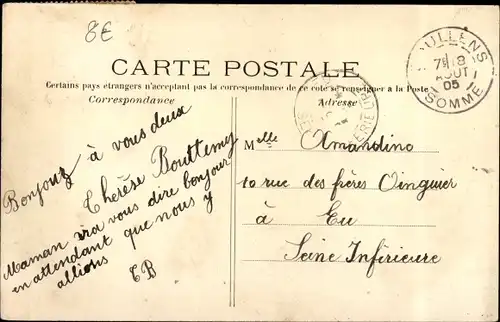 8E
CARTE POSTALE
Certains pays étrangers n'acceptant pas la correspondance de ce côté se renseigner à la Poste
Correspondance
Adresse
DOULLENS
7 18
AOUT
05
SOMME
Bonjour à vous deux
Thérèse Bouttemy
Maman ira vous dire bonjour
en attendant que nous y
allions
TB
Melle Amandine
10 rue des frères
à Eu
Seine Inférieure